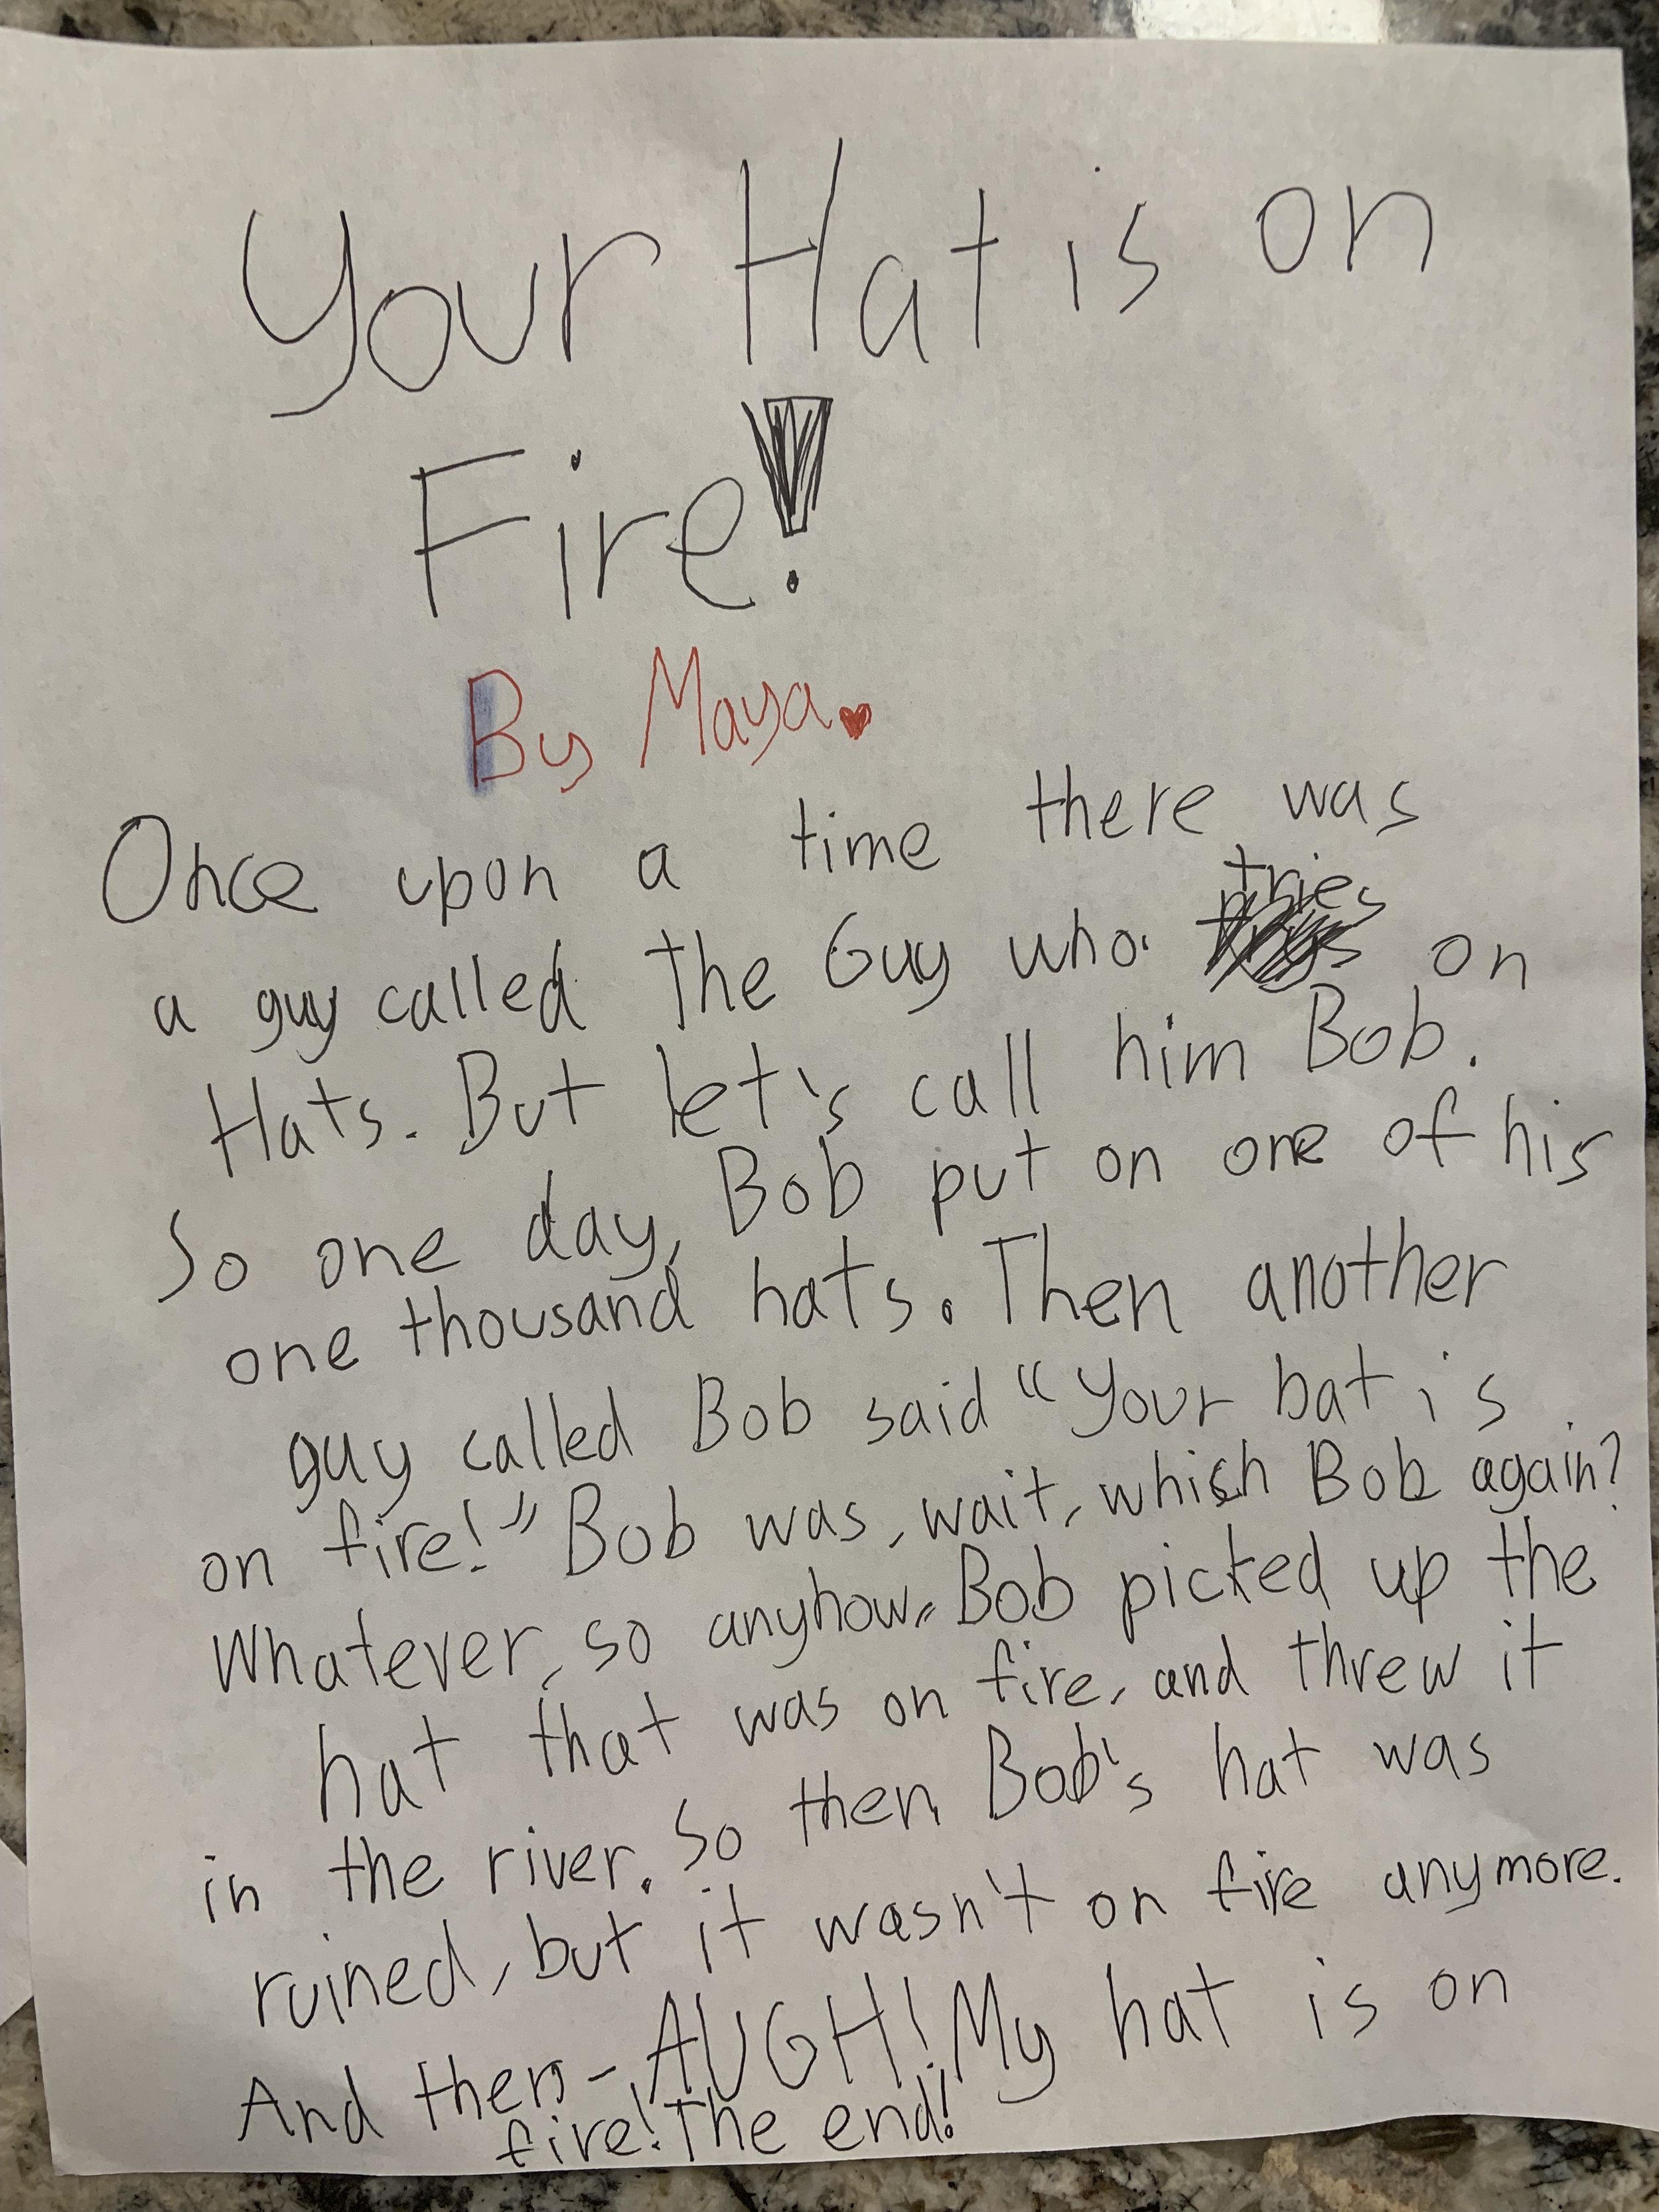 Your Hat is on
Fire!
By Maya.
Once upon a time there was
a guy called The Guy who tries on
Hats. But let's call him Bob.
So one day, Bob put on one of his
one thousand hats. Then another
guy called Bob said "Your hat is
on fire!" Bob was, wait, which Bob again?
Whatever, so anyhow, Bob picked up the
hat that was on fire, and threw it
in the river. So then, Bob's hat was
ruined, but it wasn't on fire anymore.
And then - AUGH! My hat is on
fire! The end!